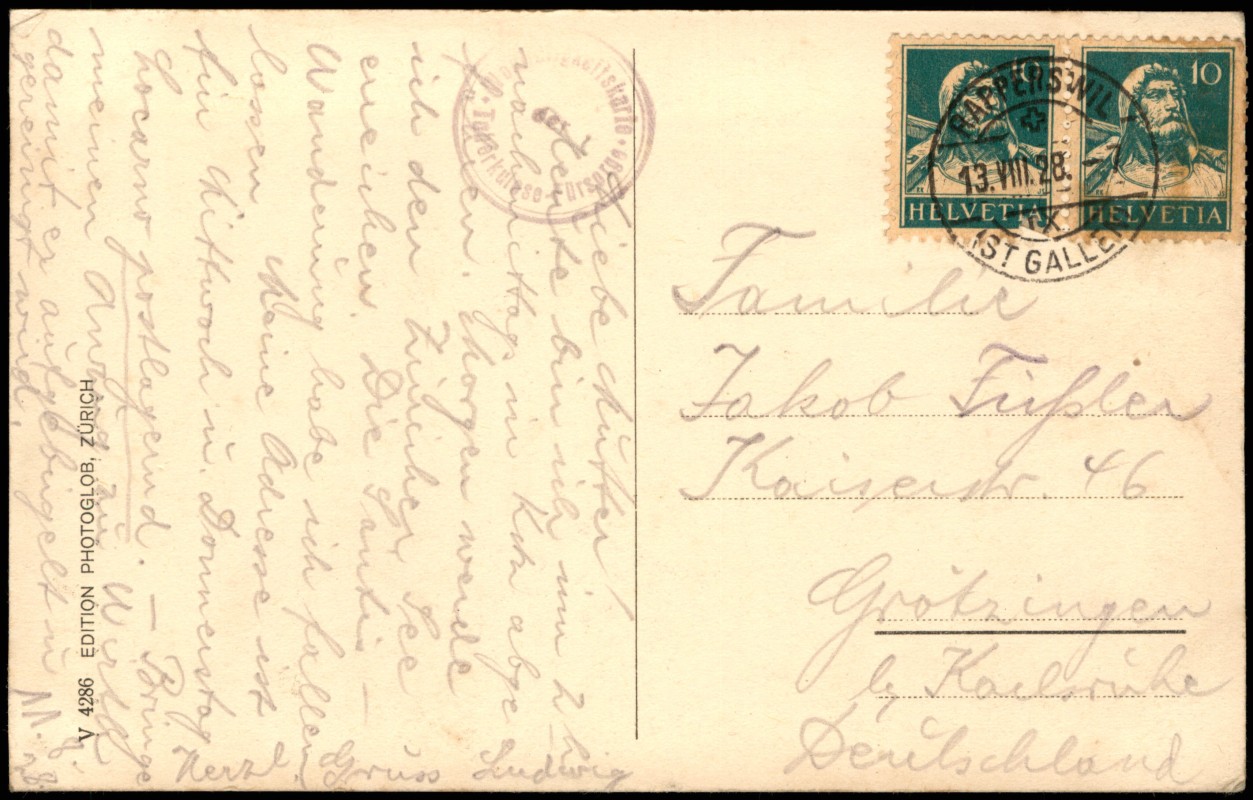 Liebe Mutter!
Heute bin ich um 2 h
nachmittags in abge
fahren. Morgen werde
ich den Züricher See
erreichen. Die Säntis –
Wanderung habe ich fallen
lassen. Meine Adresse ist
für Mittwoch u. Donnerstag
Locarno postlagernd. – Bringe
meinen Anzug zur
damit er aufgebügelt u
gereinigt wird.
Herzl. Gruss Ludwig
V 4286 EDITION PHOTOGLOB, ZÜRICH
Tuberkulose-Fürsorge
10
HELVETIA
10
HELVETIA
RAPPERSWIL
13.VIII.28. – 7
(ST GALLEN)
Familie
Jakob Füßler
Kaiserstr. 46
Grötzingen
b/ Karlsruhe
Deutschland